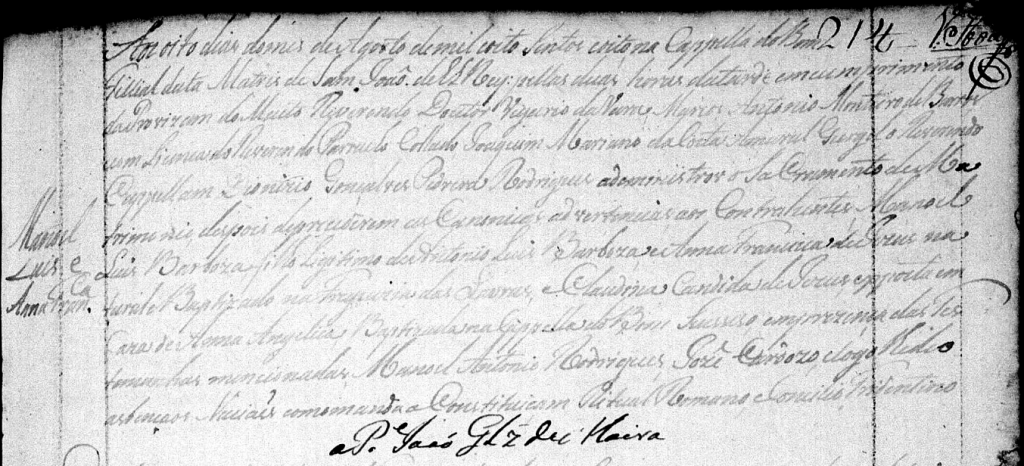 Aos oito dias do mes de Agosto de mil oito Sentos oito na Cappella do Bom 214
filial desta Matris de Sam João de El Rey pellas duas horas da tarde em cumprimento
da Provizam do Muito Reverendo Doutor Vigario da Vara Marcos Antonio Monteiro de Barros
com Licença do Reverendo Parrocho Collado Joaquim Mariano da Costa Amaral Gurgel o Reverendo
Cappellam Gonçalves Rodrigues administrou o Sacramento do Ma
trimonio, despois de precederem as Canonicas advertencias aos Contrahentes Manoel
Manoel
Luis e
Anna Fran.ca
Luis Barboza filho Legitimo de Antonio Luis Barboza e Anna Francisca de Jezus na
tural e Baptizado na freguezia das Lavras, e Claudina Candida de Jezus exposta em
Caza de Anna Angelica Baptizada na Cappella do Bom Sucesso em prezença das Tes
temunhas mencionadas Manoel Antonio Rodrigues, Jozé Cardozo, e logo
as bençaos Nuciaes como manda a Constituicam Ritual Romano, e Concilio Tridentino
o P.e João Glz de